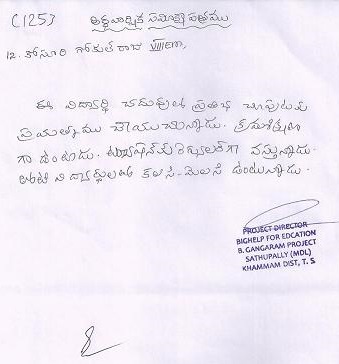 C1253 అర్ధవార్షిక సమీక్ష పత్రము
12. కోసూరి గోకుల్ రాజు VIII EM,
ఈ విద్యార్థి చదువులో ప్రతిభ చూపుటకు
ప్రయత్నము చేయుచున్నాడు. క్రమశిక్షణ
గా ఉంటాడు. ట్యూషన్‌కు రెగ్యులర్‌గా వస్తున్నాడు.
తోటి విద్యార్థులతో కలసి-మెలసి ఉంటున్నాడు.
PROJECT DIRECTOR
BIGHELP FOR EDCATION
B. GANGARAM PROJECT
SATHUPALLY (MDL)
KHAMMAM DIST, T. S